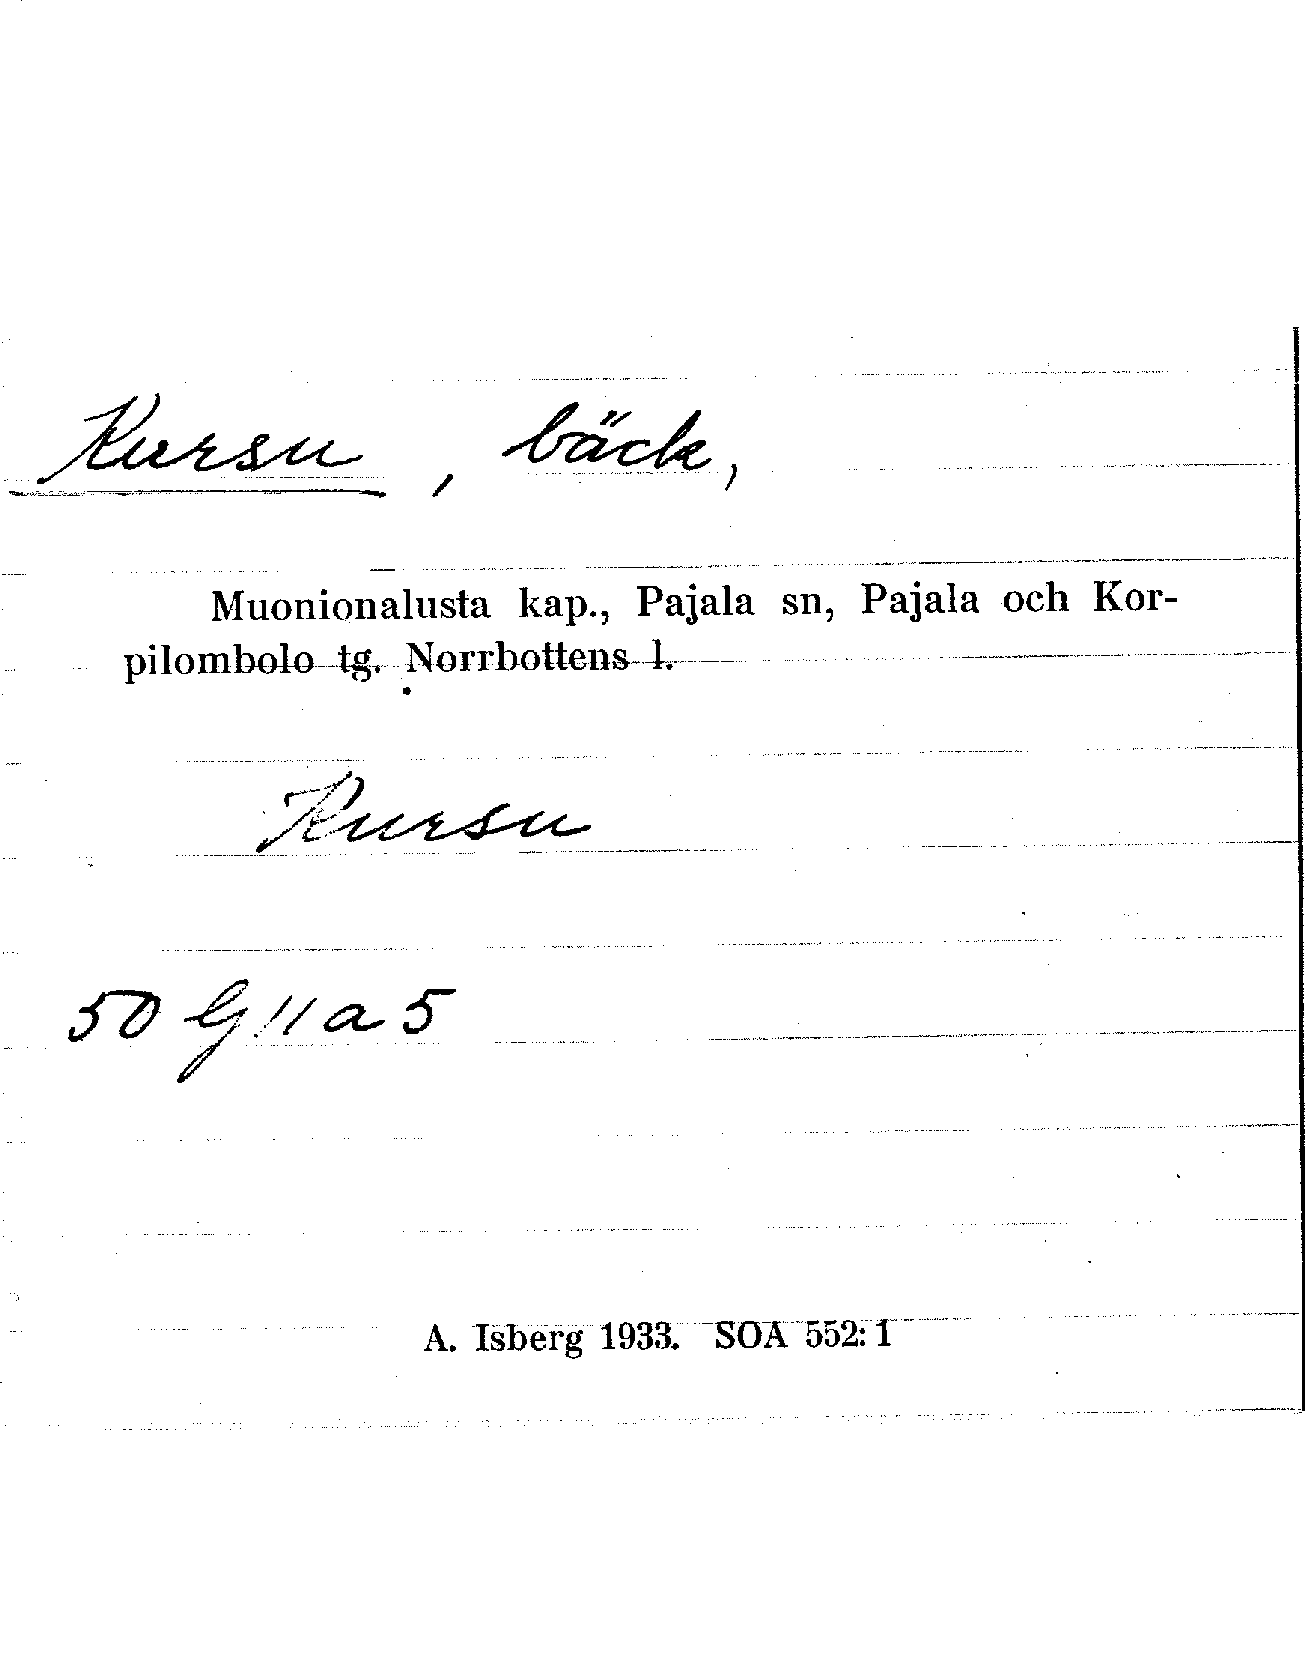 Kursu, bäck,
Muonionalusta kap., Pajala sn, Pajala och Kor-
pilombolo tg. Norrbottens l.
Kursu
50 G 11 a 5
A. Isberg 1933. SOA 552: 1